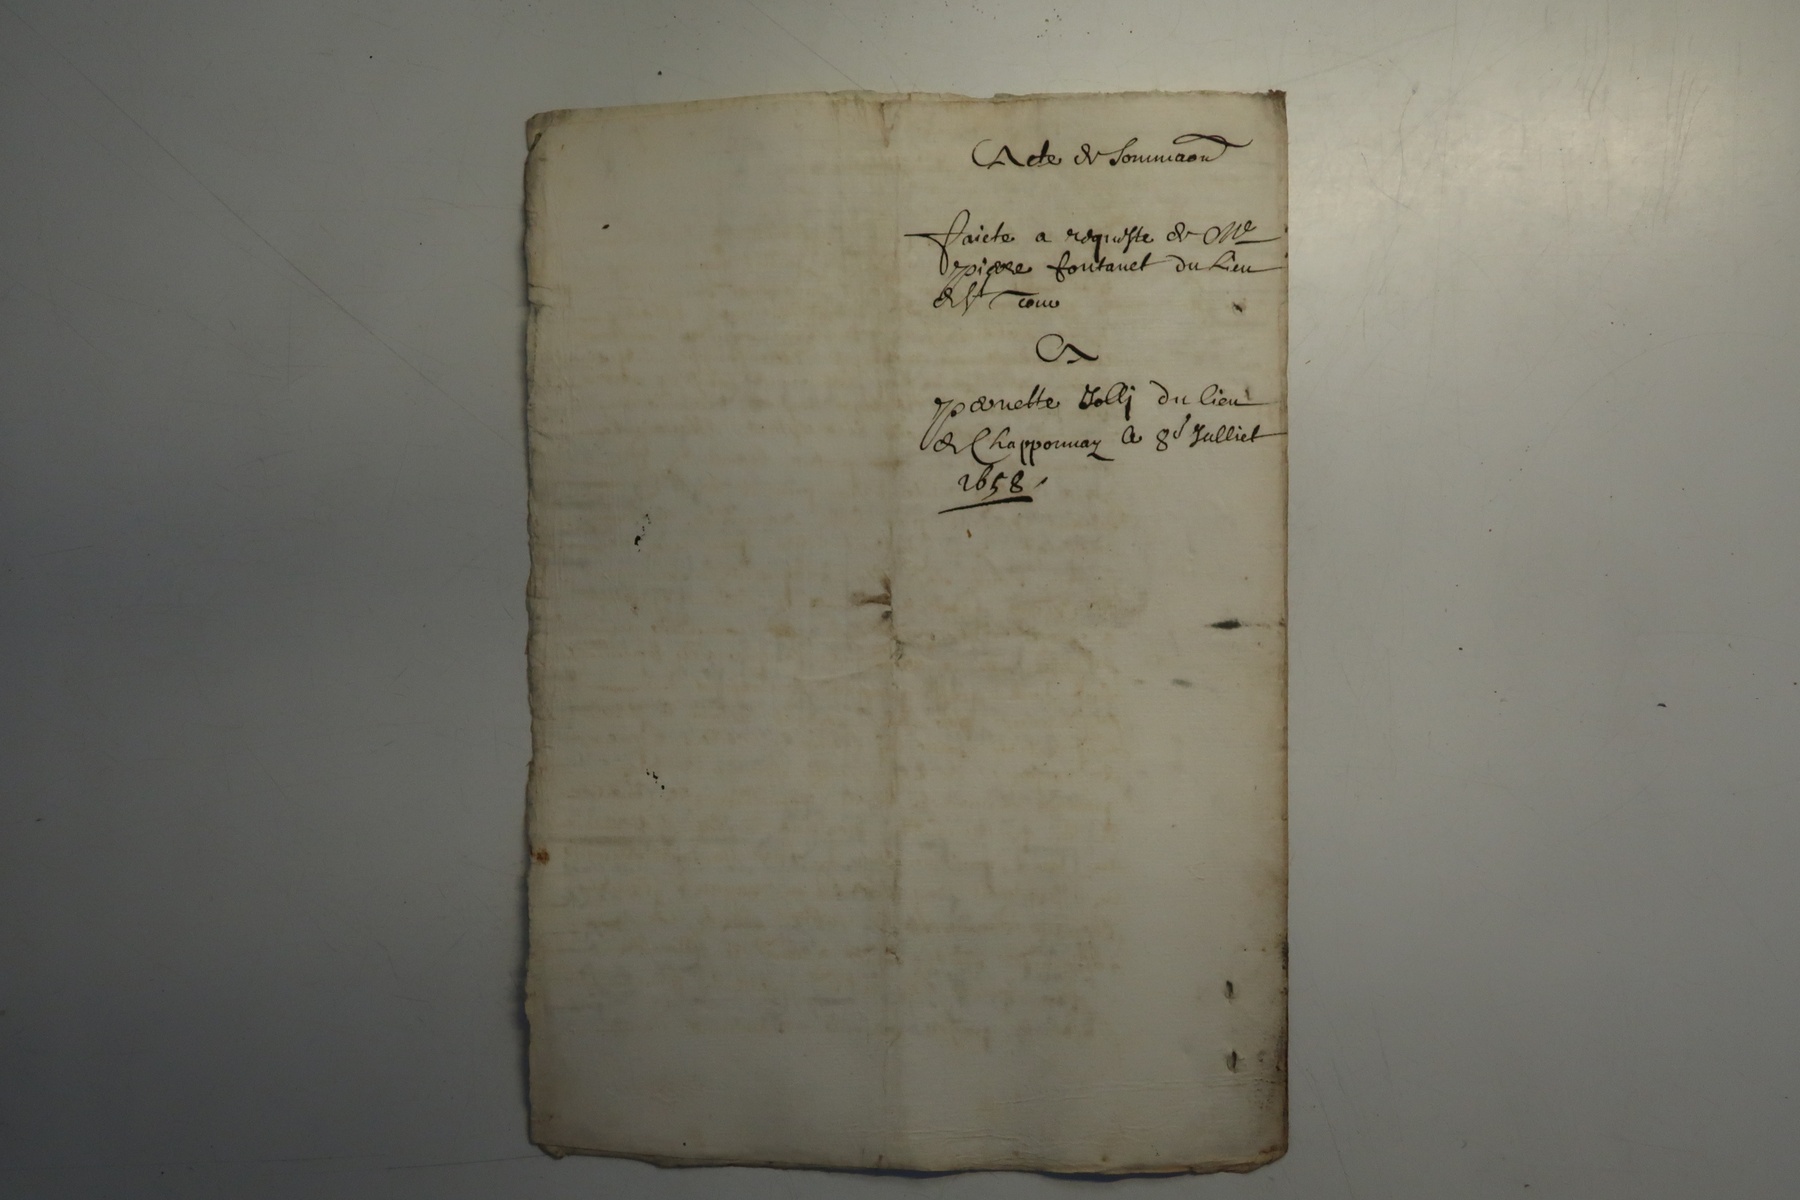 Acte de Sommaon
Faicte a requeste de Me
Pierre fontanet du Lieu
de St
A
Pernette Jolli du lieu
de Chapponnay le 8e Julliet
1658